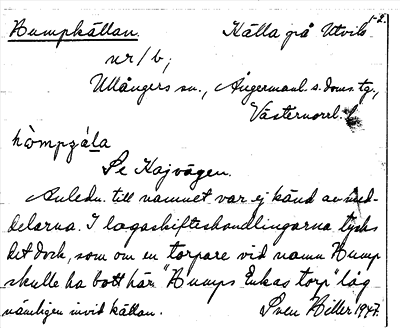 Humpkällan. Källa på Utvik 1-2.
nr 1/b,
Ullångers sn., Ångermanl. s. doms. tg.,
Västernorrl. l.
hòmpȥála
Se Kajvägen.
Anledn. till namnet var ej känd av med-
delarna. I lagaskifteshandlingarna tycks
det dock, som om en torpare vid namn Hump
skulle ha bott här. "Humps Enkas torp" låg
nämligen invid källan. Sven Heller 1947.